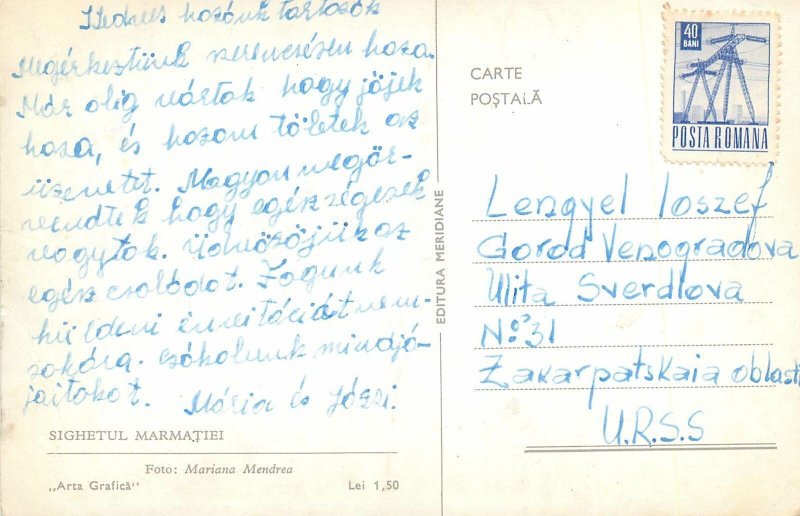 Kedves hozánk tartozók
Megérkeztünk szerencsésen hoza.
Már alig vártak hogy jöjek
hoza, és hozam töletek az
üzenetet. Nagyon megör-
vendtek hogy egészségesek
vagytok. Üdvözöjük az
egész csolódot. Fogunk
hüldeni invitáciát nem-
sokára. csókolunk mindjá-
jaitokot. Mária és Józsi.
SIGHETUL MARMAȚIEI
Foto: Mariana Mendrea
„Arta Grafică“ Lei 1,50
EDITURA MERIDIANE
CARTE
POȘTALĂ
40
BANI
POSTA ROMANA
Lengyel Ioszef
Gorod Venogradova
Ulita Sverdlova
No. 31
Zakarpatskaia oblasti
U.R.S.S